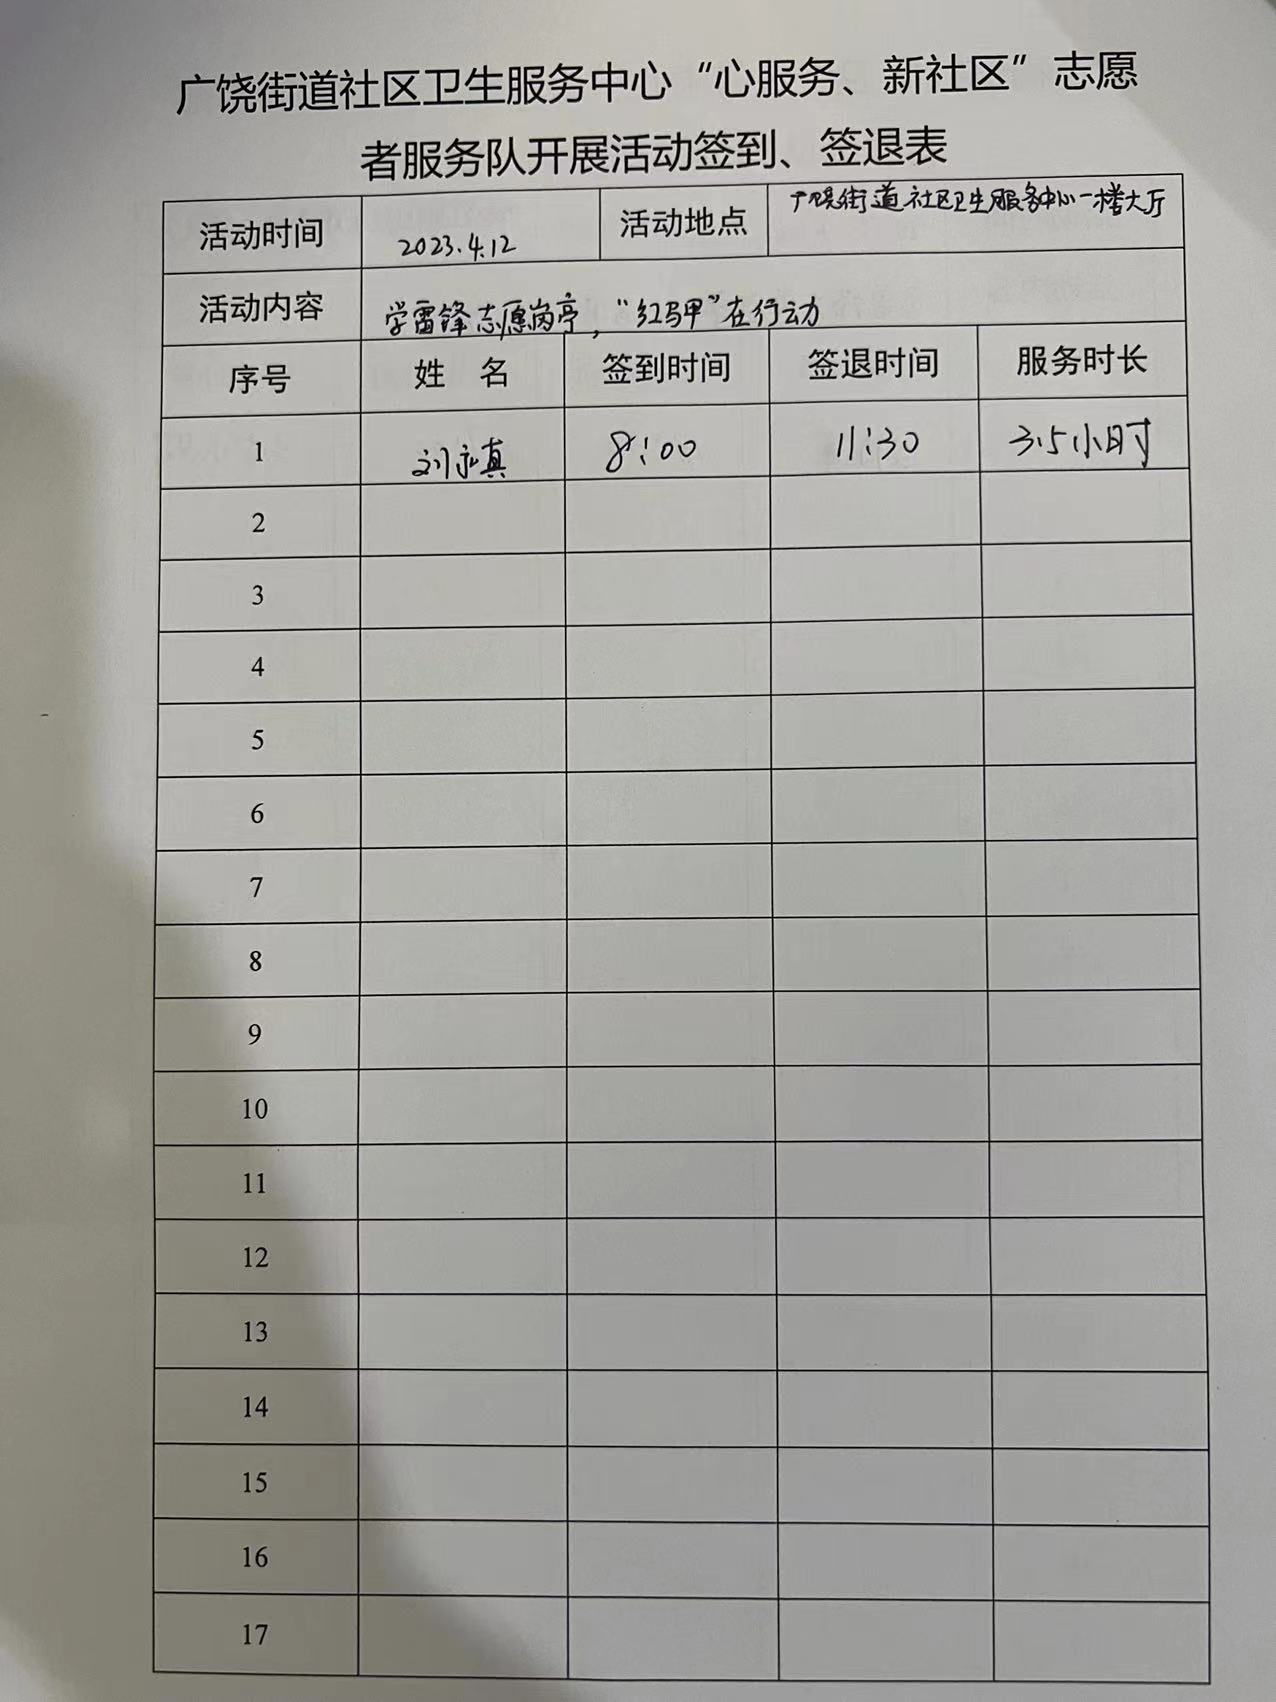 广饶街道社区卫生服务中心“心服务、新社区”志愿
者服务队开展活动签到、签退表
活动时间 2023.4.12 活动地点 广饶街道社区卫生服务中心一楼大厅
活动内容 学雷锋志愿岗亭，“红马甲”在行动
序号 姓 名 签到时间 签退时间 服务时长
1 刘永真 8:00 11:30 3.5小时
2
3
4
5
6
7
8
9
10
11
12
13
14
15
16
17